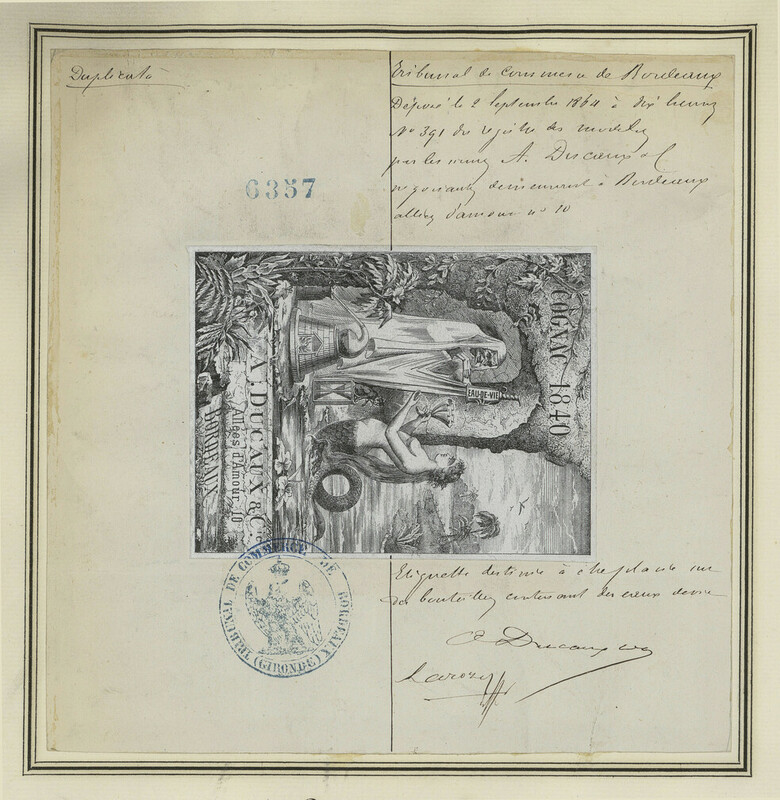 Duplicata
Tribunal de Commerce de Bordeaux
Déposé le 2 Septembre 1864 à dix heures
N° 391 du registre des modèles
par les A. Ducaux &
négociants demeurant à Bordeaux
allées d'amour n° 10
6357
COGNAC 1840
EAU-DE-VIE
A. DUCAUX & Cie
Allées d'Amour, 10
BORDEAUX
Etiquette destinée à être placée sur
des bouteilles contenant des eaux de vie
A Ducaux &
TRIBUNAL DE COMMERCE DE BORDEAUX
(GIRONDE)